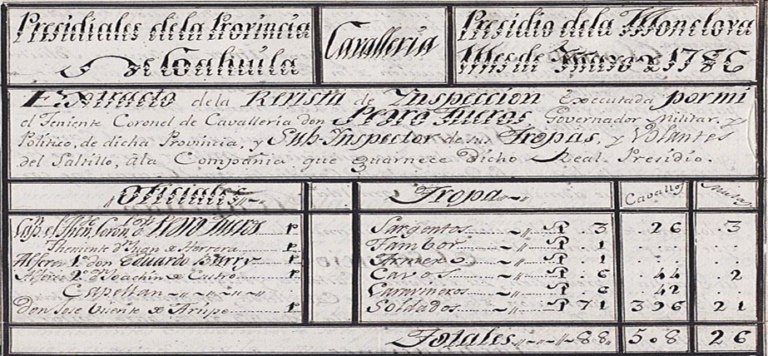 Presidiales dela Provincia
de Coahuila
Cavalleria
Presidio dela Monclova
Mes de Enero de 1786
Extracto dela Revista de Inspeccion Executada por mi
el Teniente Coronel de Cavalleria don Pedro Tueros Governador Militar, y
Politico, de dicha Provincia, y Sub-Inspector de sus Tropas, y Volantes
del Saltillo, ála Compañia que guarnece dicho Real Presidio.
Oficiales
Tropa
Cavallos
Mulas
Pedro Tueros P
Sargentos P 3 26 3
Theniente Dn Juan de Herrera P
Tambor P 1
Alferes 1º don Eduardo Burry P
Armero P 1
Alferes 2º Dn Joachin de Castro P
Cavos P 6 44 2
Capellan
Caravineros P 6 42
Don José Vicente de P
Soldados P 71 396 21
Totales 88 508 26